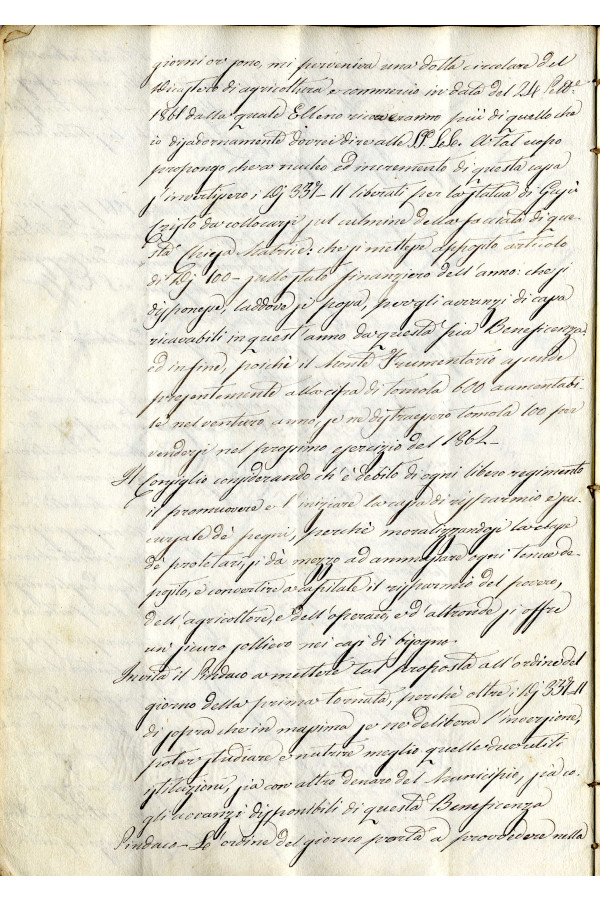 giorni or sono, mi perveniva una dotta circolare del
Ministero di agricoltura e commercio in data del 24 7bre
1861 dalla quale Elleno ricaveranno più di quello che
io disadornamente dovrei dire alle SS. LL. A tal uopo
propongo che a nucleo ed incremento di questa cassa
s'invertissero i Dj 337-11 liberati per la statua di Gesù
Cristo da collocarsi sul culmine della facciata di que-
sta Chiesa Madrice: che si mettesse apposito articolo
di Dj 100- sullo stato finanziero dell'anno: che si
disponesse, laddove si possa, per gli avvanzi di cassa
ricavabili in quest'anno da questa pia Beneficenza:
ed infine, poichè il Monte Frumentario ascende
presentemente alla cifra di tomola 600 aumentabi-
le nel venturo anno, se ne distraessero tomola 100 per
vendersi nel prossimo esercizio del 1862-
Il Consiglio considerando ch'è debito di ogni libero regimento
il promuovere e l'iniziare la cassa di risparmio e suc-
cursale dè pegni, perchè moralizzandosi la classe
dè proletari, si dà mezzo ad ammassare ogni tenue de-
posito, e convertire a capitale il risparmio del povero,
dell'agricoltore, e dell'operaio, e d'altronde si offre
un sicuro sollievo nei casi di bisogno-
Invita il Sindaco a mettere tal proposta all'ordine del
giorno della prima tornata, perchè oltre i Dj 337-11
di sopra che in massima se ne delibera l'inversione,
possa studiare e nutrire meglio quelle due utili
istituzioni, sia con altro denaro del Municipio, sia co-
gli avvanzi disponibili di questa Beneficenza
Sindaco- L'ordine del giorno porta a provvedere nella